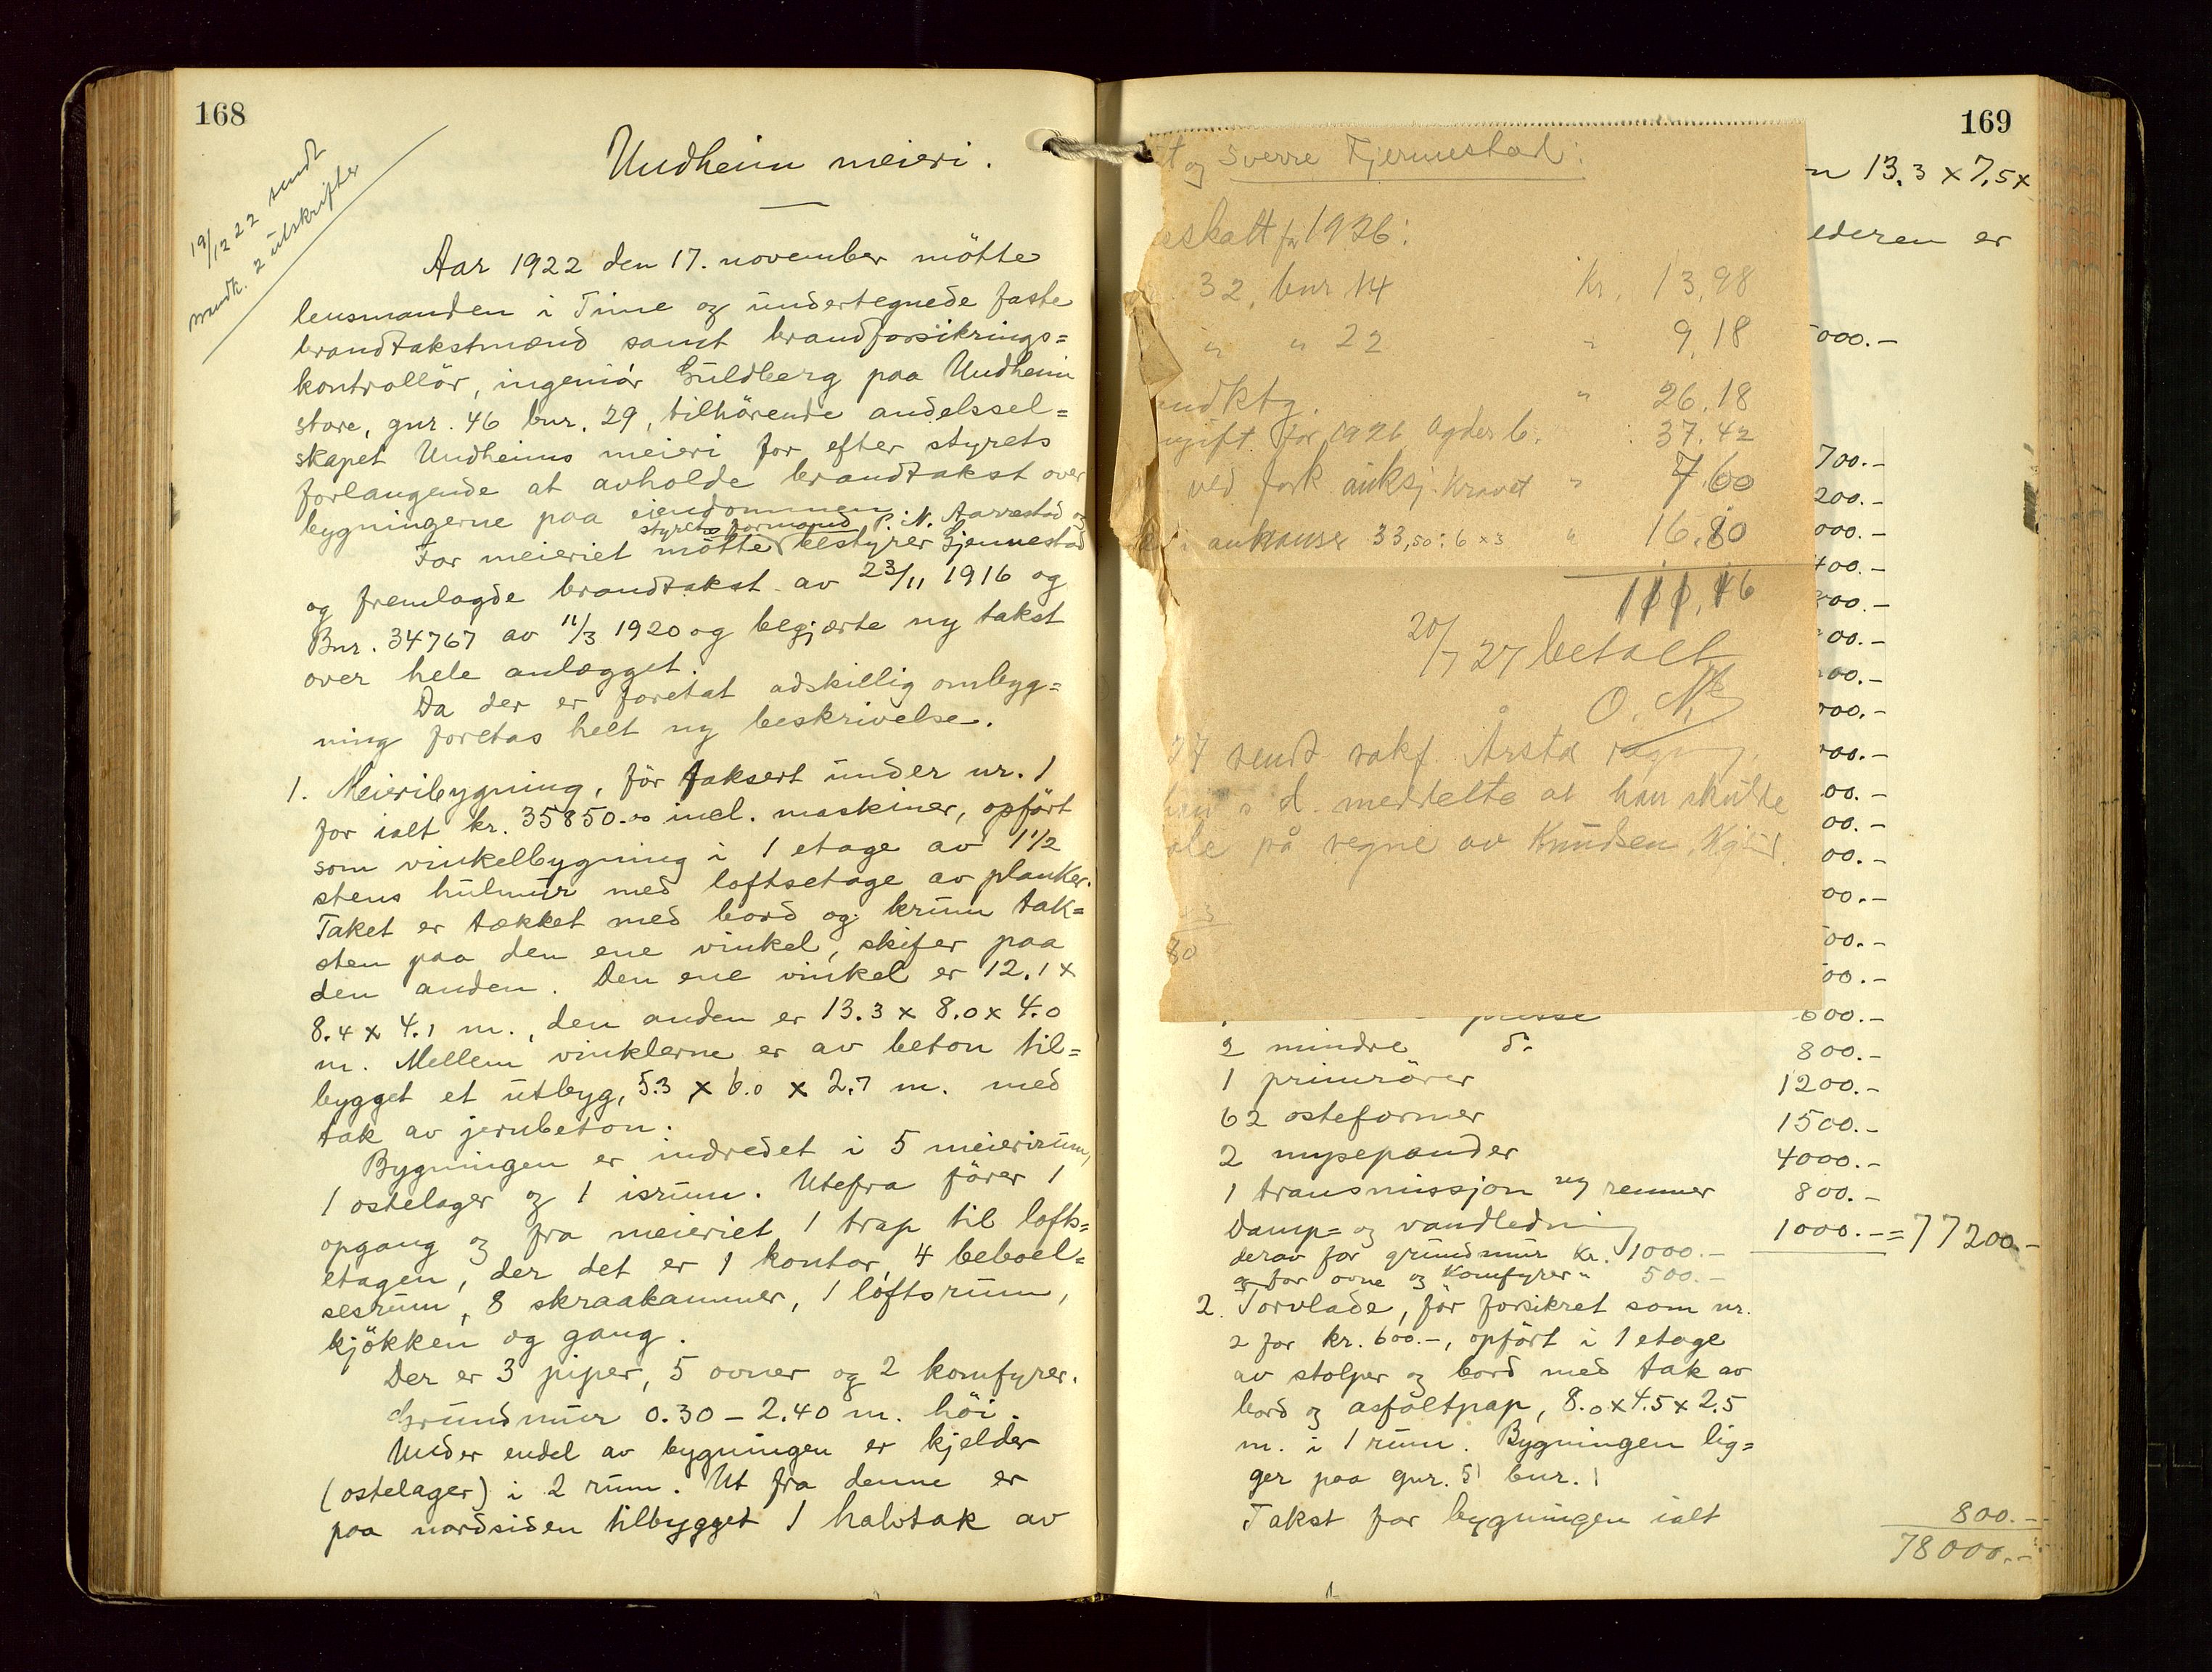 168
19/12 22 sendt
brandk. 2 utskrifter
Undheim meieri.
Aar 1922 den 17. november mötte
lensmanden i Time og undertegnede faste
brandtakstmænd samt brandforsikrings=
kontrollör, ingeniör Guldberg paa Undheim
store, gnr. 46 bnr. 29, tilhörende andelssel=
skapet Undheims meieri for efter styrets
forlangende at avholde brandtakst over
bygningerne paa eiendommen.
styrets formand P. N. Aarrestad og
For meieriet mötte bestyrer Gjennestad
og fremlagde brandtakst av 23/11 1916 og
Bnr. 34767 av 11/3 1920 og begjærte ny takst
over hele anlægget.
Da der er foretat adskillig ombyg=
ning foretas helt ny beskrivelse.
1. Meieribygning, för taksert under nr. 1
for ialt kr. 35850.00 incl. maskiner, opfört
som vinkelbygning i 1 etage av 1 1/2
stens hulmur med loftsetage av planker.
Taket er tækket med bord og krum tak=
sten paa den ene vinkel, skifer paa
den anden. Den ene vinkel er 12.1 x
8.4 x 4.1 m., den anden er 13.3 x 8.0 x 4.0
m. Mellem vinklerne er av beton til=
bygget et utbyg, 5.3 x 6.0 x 2.7 m. med
tak av jernbeton.
Bygningen er indredet i 5 meierirum,
1 ostelager og 1 isrum. Utefra förer 1
opgang og fra meieriet 1 trap til lofts=
etagen, der det er 1 kontor, 4 beboel=
sesrum, 8 skraakammer, 1 loftsrum,
kjökken og gang.
Der er 3 piper, 5 ovner og 2 komfyrer.
Grundmur 0.30 - 2.40 m. höi.
Under endel av bygningen er kjelder
(ostelager) i 2 rum. Ut fra denne er
paa nordsiden tilbygget 1 halvtak av
169
n 13.3 x 7.5 x
ederen er
000.-
700.-
200.-
000.-
400.-
00.-
00.-
00.-
00.-
00.-
00.-
00.-
00.-
00.-
00.-
00.-
og Sverre Fjermestad:
skatt for 1926:
32, bnr 14 Kr. 13,98
" " 22 " 9,18
ndktg. " 26,18
for 1926 Agder b. 37.42
ved fork. auksj. kravet " 7.60
33,50: 6 x 3 " 16.80
111,16
20/7 27 betalt
27 sendt sakf. Årstad
s d. meddelte at han skulde
ale på vegne av Knudsen,
80
presse 600.-
2 mindre do 800.-
1 primrörer 1200.-
62 osteformer 1500.-
2 mysepander 4000.-
1 transmissjon og remmer 800.-
Damp= og vandledning 1000.- = 77200.-
derav for grundmur kr. 1000.-
og for ovne og komfyrer " 500.-
2. Torvlade, för forsikret som nr.
2 for kr. 600.-, opfört i 1 etage
av stolper og bord med tak av
bord og asfaltpap, 8.0 x 4.5 x 2.5
m. i 1 rum. Bygningen lig=
ger paa gnr. 51 bnr. 1
Takst for bygningen ialt 800.-
78000.-